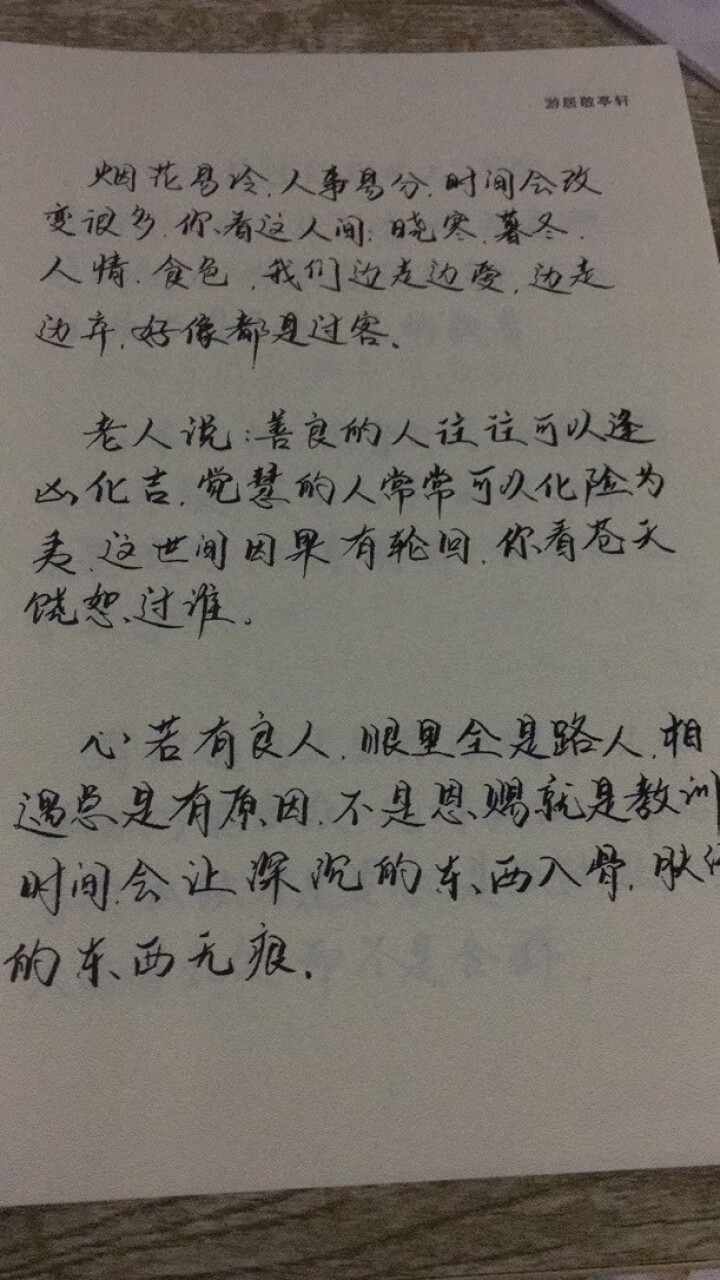 游居敬亭轩
烟花易冷,人事易分,时间会改
变很多,你看这人间:晓寒,暮冬,
人情,食色,我们边走边爱,边走
边弃,好像都是过客、
老人说:善良的人往往可以逢
凶化吉,觉慧的人常常可以化险为
夷,这世间因果有轮回,你看苍天
饶恕过谁。
心若有良人,眼里全是路人,相
遇总是有原因,不是恩赐就是教训
时间会让深沉的东西入骨,肤
的东西无痕.